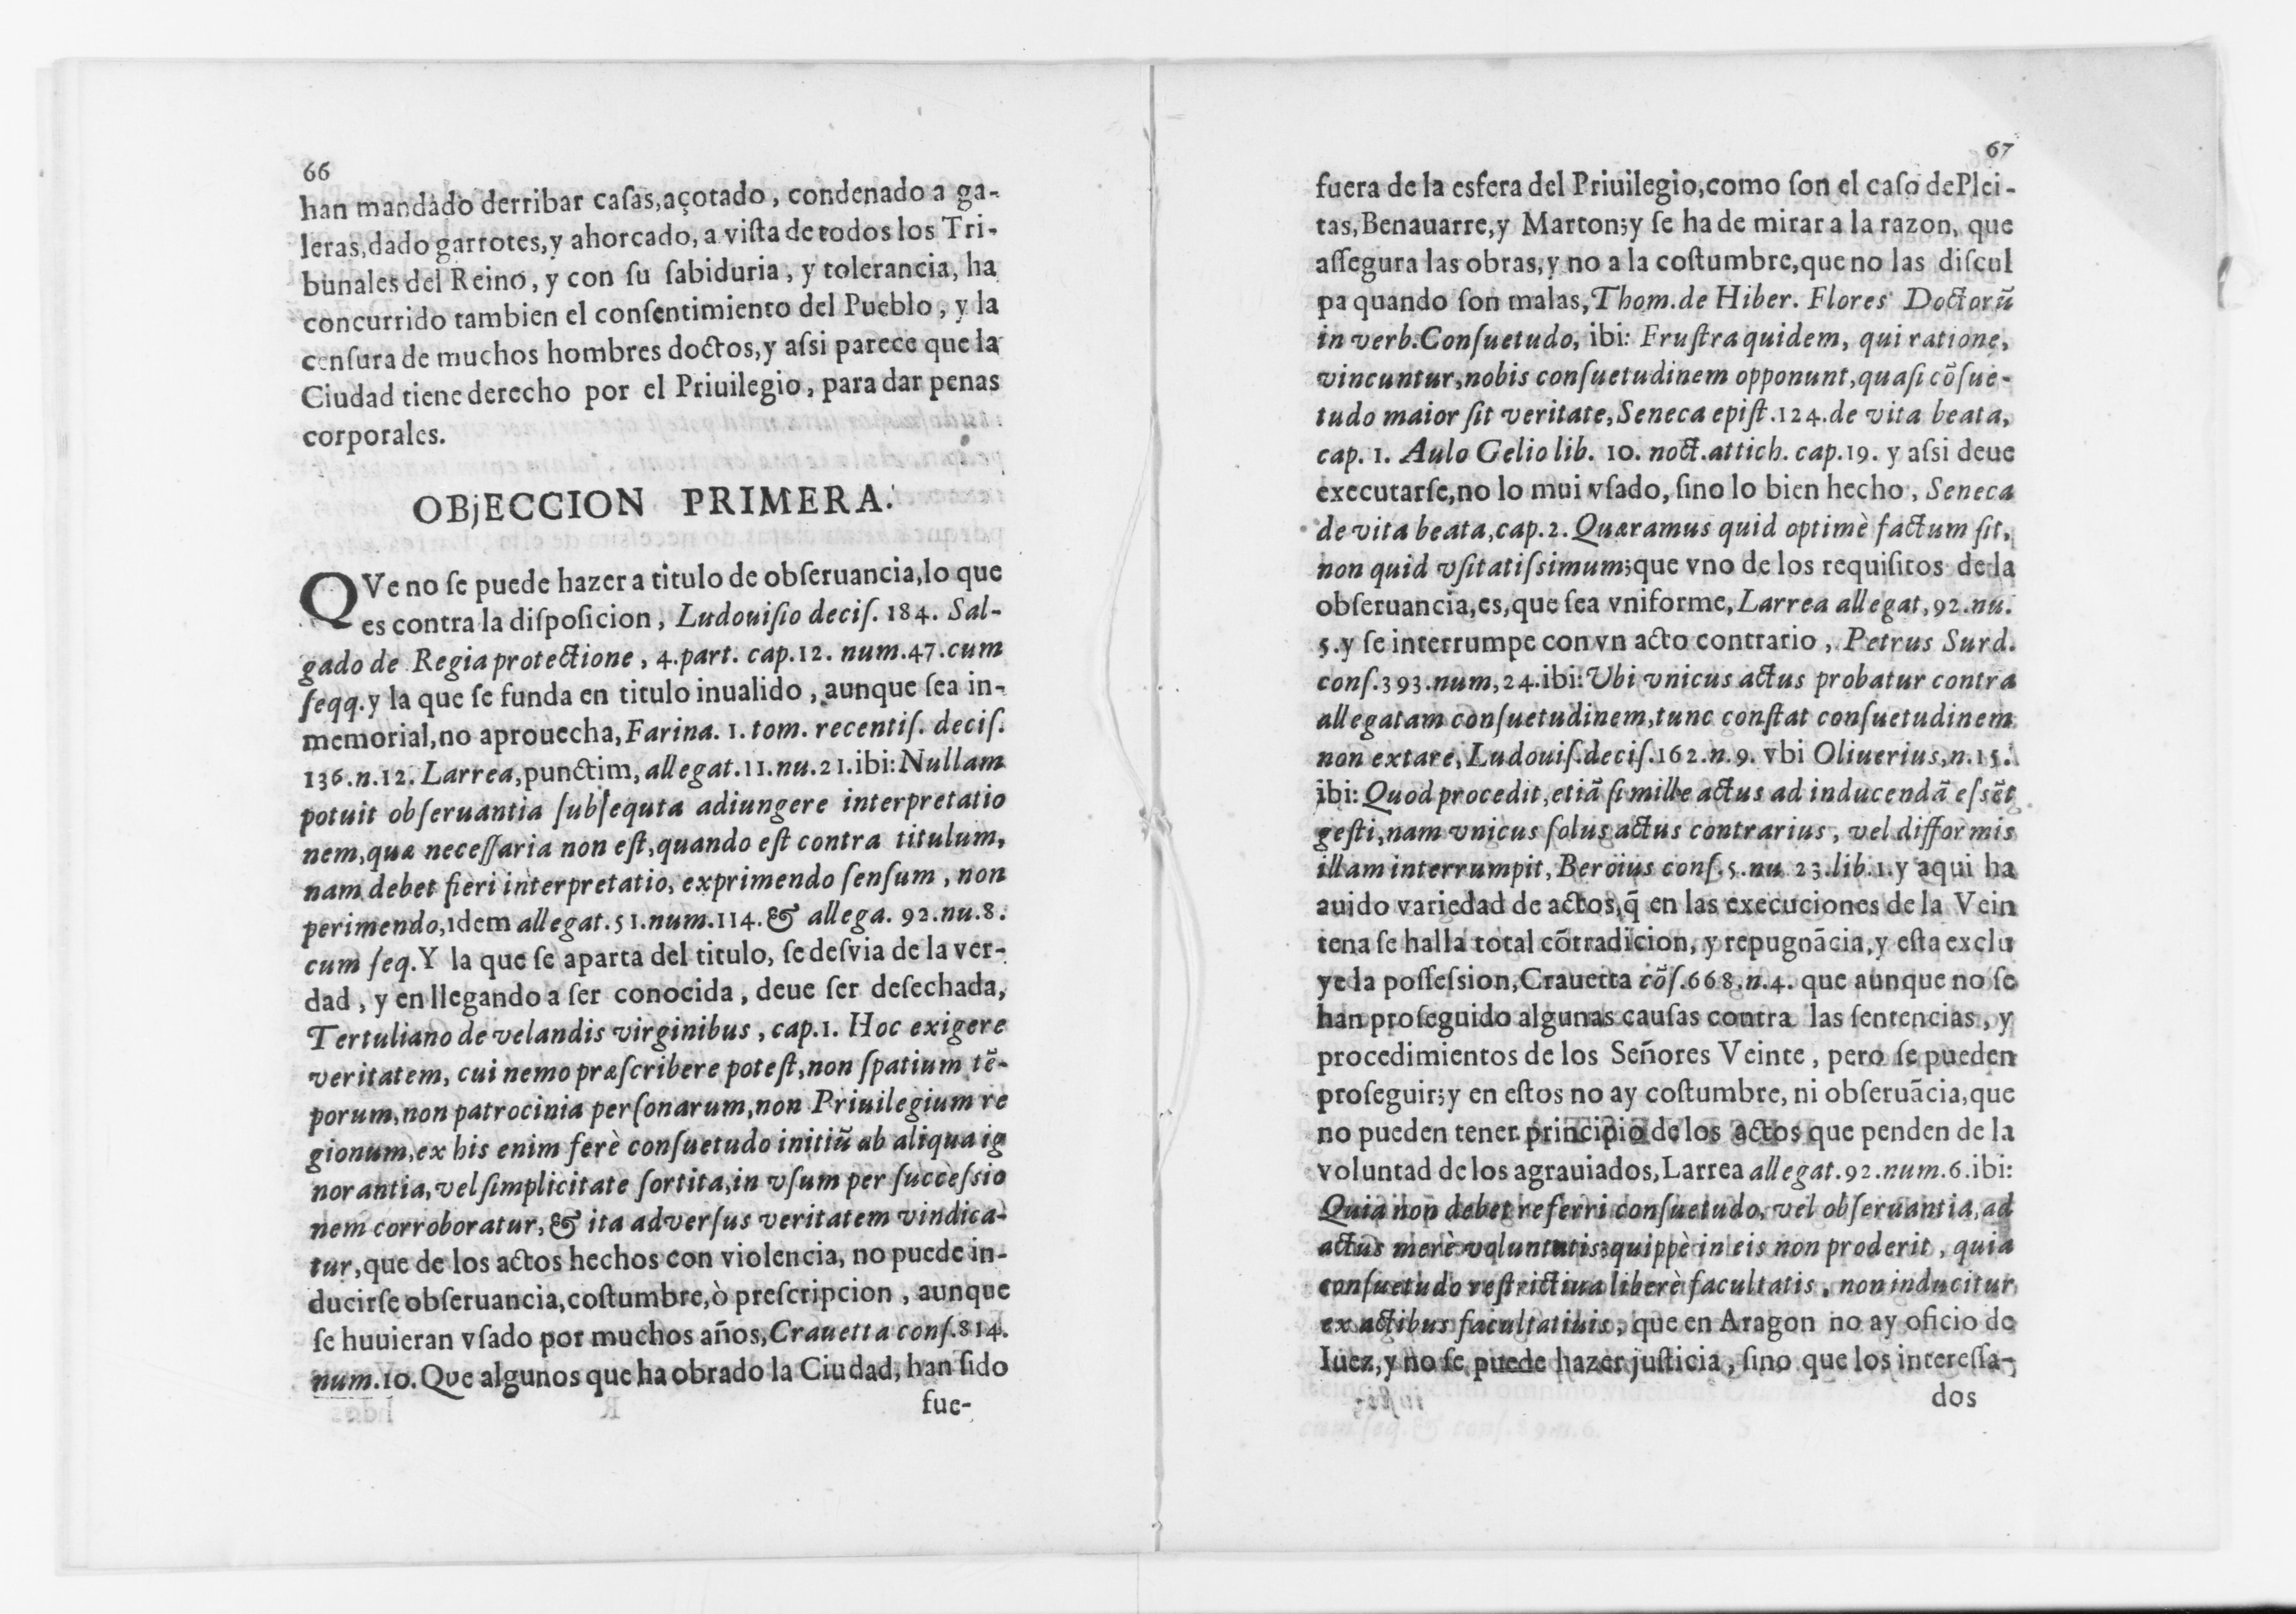 66
han mandado derribar caſas,açotado, condenado a ga-
leras,dado garrotes,y ahorcado, a viſta de todos los Tri-
bunales del Reino, y con ſu ſabiduria, y tolerancia, ha
concurrido tambien el conſentimiento del Pueblo, y la
cenſura de muchos hombres doctos,y aſsi parece que la
Ciudad tiene derecho por el Priuilegio, para dar penas
corporales.
OBjECCION PRIMERA.
QVe no ſe puede hazer a titulo de obſeruancia,lo que
es contra la diſpoſicion, Ludouiſio deciſ. 184. Sal-
gado de Regia protectione, 4.part. cap.12. num.47.cum
ſeqq.y la que ſe funda en titulo inualido, aunque ſea in-
memorial,no aprouecha,Farina. 1. tom. recentiſ. deciſ.
136.n.12. Larrea,punctim, allegat.11.nu.21.ibi:Nullam
potuit obſeruantia ſubſequta adiungere interpretatio
nem,quæ neceſſaria non eſt,quando eſt contra titulum,
nam debet fieri interpretatio, exprimendo ſenſum, non
perimendo,idem allegat.51.num.114.& allega. 92.nu.8.
cum ſeq.Y la que ſe aparta del titulo, ſe deſvia de la ver-
dad, y en llegando a ſer conocida, deue ſer deſechada,
Tertuliano de velandis virginibus, cap.1. Hoc exigere
veritatem, cui nemo præſcribere poteſt,non ſpatium tẽ-
porum,non patrocinia perſonarum,non Priuilegium re
gionum,ex his enim ferè conſuetudo initiũ ab aliqua ig
norantia,vel ſimplicitate ſortita,in vſum per ſucceſsio
nem corroboratur,& ita adverſus veritatem vindica-
tur,que de los actos hechos con violencia, no puede in-
ducirſe obſeruancia,coſtumbre,ò preſcripcion, aunque
ſe huuieran vſado por muchos años,Crauetta conſ.814.
num.10.Que algunos que ha obrado la Ciudad, han ſido
fue-
67
fuera de la esfera del Priuilegio,como ſon el caſo de Plei-
tas,Benauarre,y Marton;y ſe ha de mirar a la razon, que
aſſegura las obras,y no a la coſtumbre,que no las diſcul
pa quando ſon malas,Thom.de Hiber. Flores Doctorũ
in verb.Conſuetudo, ibi: Fruſtra quidem, qui ratione,
vincuntur,nobis conſuetudinem opponunt,quaſi cõſue-
tudo maior ſit veritate,Seneca epiſt.124.de vita beata,
cap. 1. Aulo Gelio lib. 10. noct.attich. cap.19. y aſsi deue
executarſe,no lo mui vſado, ſino lo bien hecho, Seneca
de vita beata,cap.2. Quæramus quid optimè factum ſit,
non quid vſitatiſsimum;que vno de los requiſitos de la
obſeruancia,es,que ſea vniforme, Larrea allegat,92.nu.
5.y ſe interrumpe con vn acto contrario, Petrus Surd.
conſ.393.num,24.ibi:Vbi vnicus actus probatur contra
allegatam conſuetudinem,tunc conſtat conſuetudinem
non extare, Ludouiſ.deciſ.162.n.9. vbi Oliuerius,n.15.
ibi: Quod procedit,etiã ſi mille actus ad inducendã eſsẽt
geſti,nam vnicus ſolus actus contrarius, vel difformis
illam interrumpit,Beroius conſ.5.nu 23.lib.1.y aqui ha
auido variedad de actos,q̃ en las execuciones de la Vein
tena ſe halla total cõtradicion, y repugnãcia,y eſta exclu
ye la poſſeſsion,Crauetta cõſ.668.n.4. que aunque no ſe
han proſeguido algunas cauſas contra las ſentencias, y
procedimientos de los Señores Veinte, pero ſe pueden
proſeguir;y en eſtos no ay coſtumbre, ni obſeruãcia,que
no pueden tener principio de los actos que penden de la
voluntad de los agrauiados,Larrea allegat.92.num.6.ibi:
Quia non debet referri conſuetudo, vel obſeruantia,ad
actus merè voluntatis;quippè in eis non proderit, quia
conſuetudo reſtrictiua liberè facultatis, non inducitur
ex actibus facultatiuis, que en Aragon no ay oficio de
Iuez,y no ſe puede hazer juſticia, ſino que los intereſſa-
dos